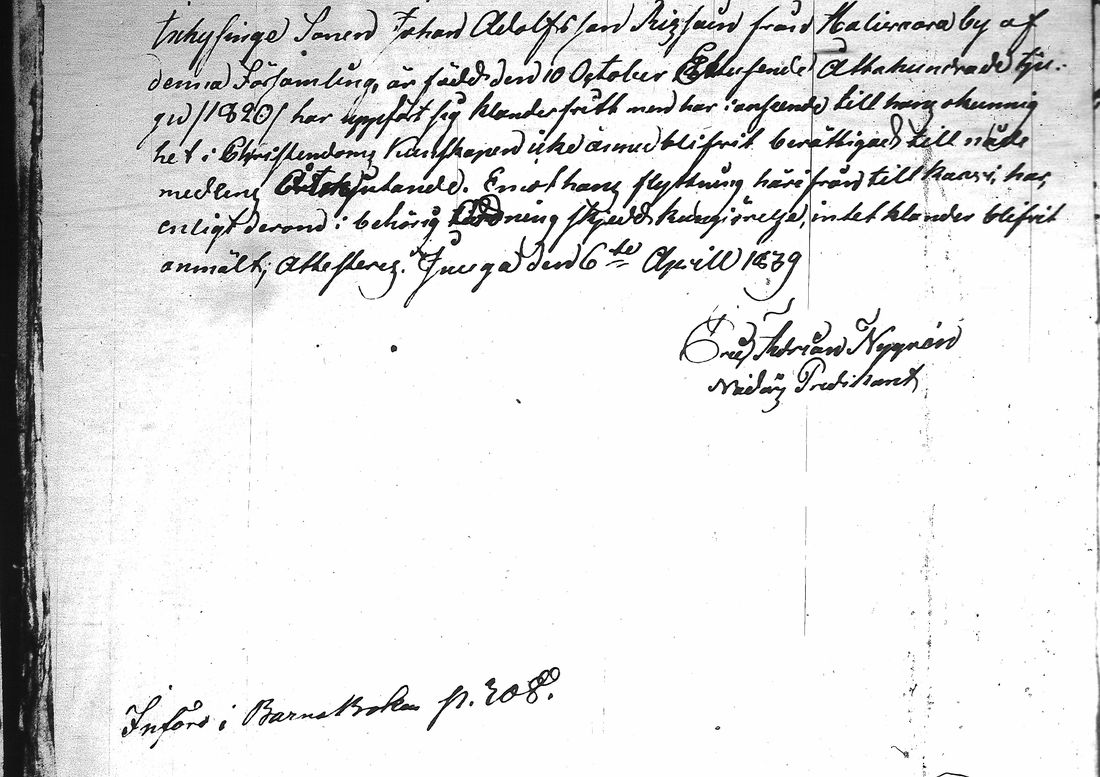 Inhysinge Sonen Johan Adolfsson from Kalismora by af
denna Församling, är född den 10 October Ettusende Åttahundrade tju-
gu /1820/ har uppfört sig klanderfritt men har i anseende till hans okunnig
het i Christendoms kunskapen icke ännu blifvit berättigad till nåde
medlens åtnjutande. Emot hans flyttning härifrån till Kansi, har,
enligt derom i behörig ordning skjedd kungjörelse, intet klander blifvit
anmält; Attesteres. Junga den 6te Aprill 1839
Eric Adrian Nygrén
Nådårs Predikant
Införd i Barnaboken p. 308.